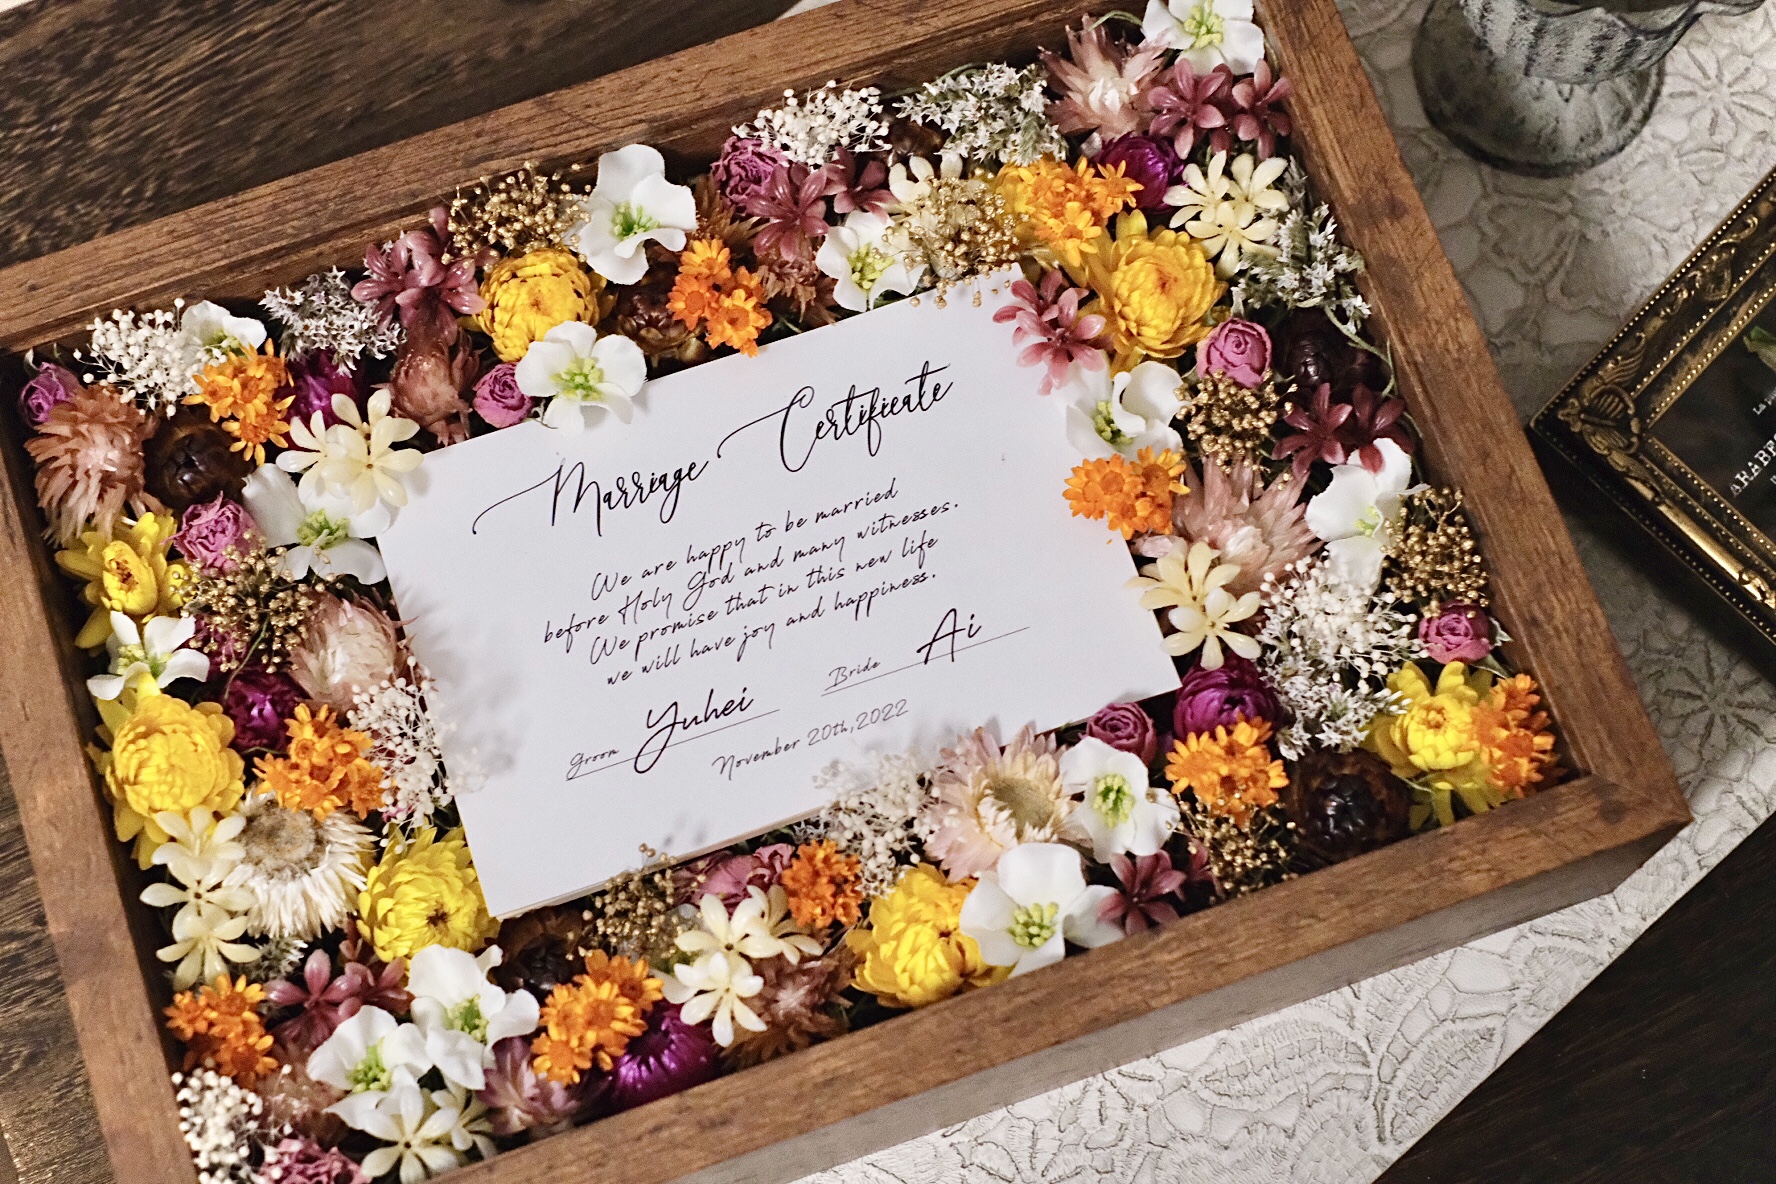 Marriage Certificate
We are happy to be married
before Holy God and many witnesses.
We promise that in this new life
we will have joy and happiness.
Groom Yuhei Bride Ai
November 20th,2022